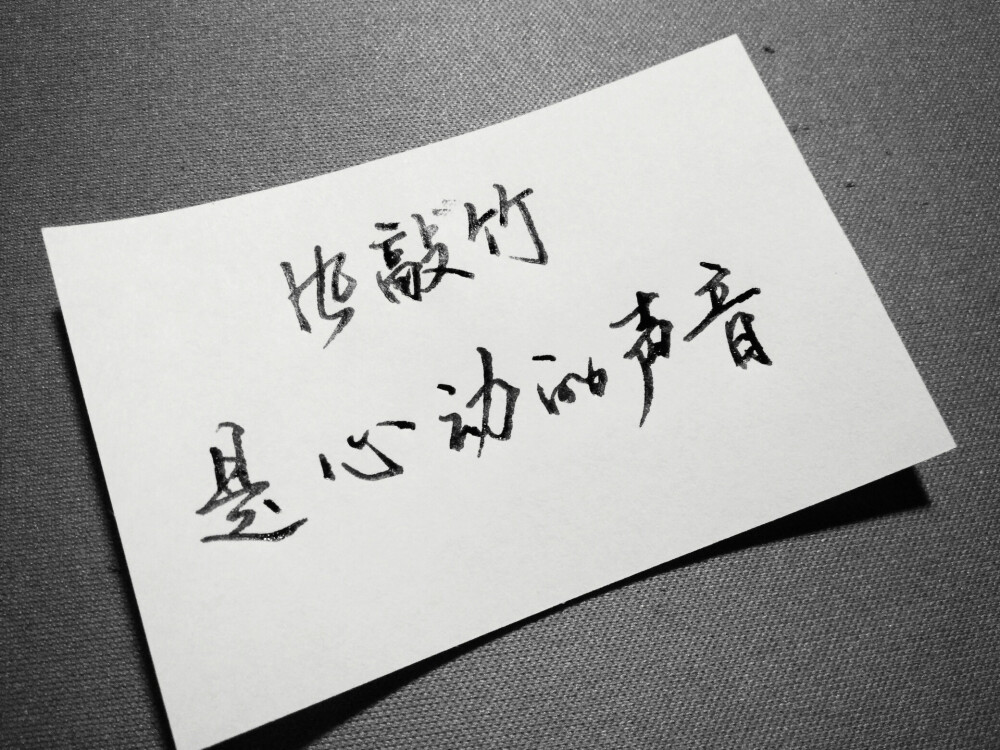 敲竹
是心动的声音